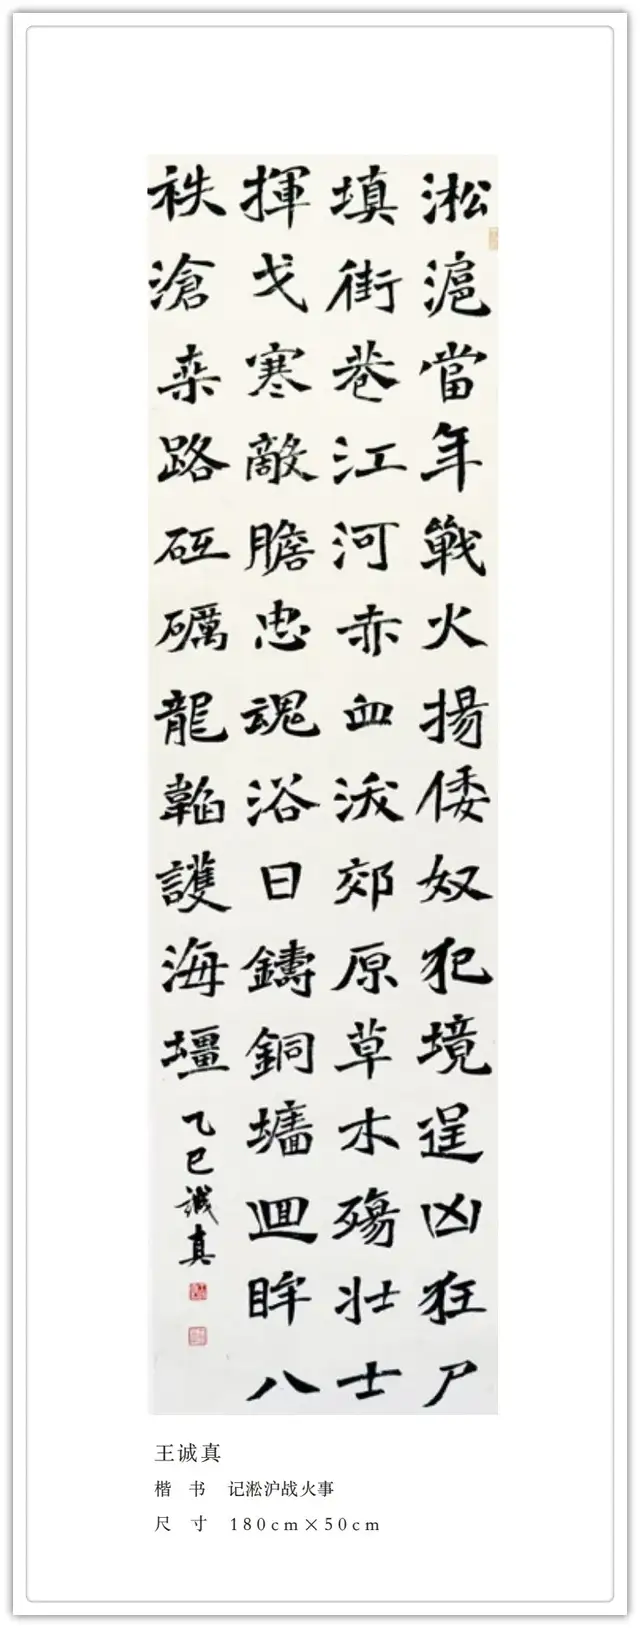 淞滬當年戰火揚倭奴犯境逞凶狂尸
填街巷江河赤血沃郊原草木殤壯士
揮戈寒敵膽忠魂浴日鑄銅墻迴眸八
秩滄桒路砥礪龍韜護海壃
乙巳誠真
王诚真
楷 书 记淞沪战火事
尺 寸 180cm×50cm